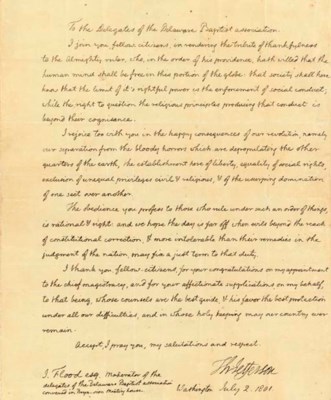 To the Delegates of the Delaware Baptist association.
I join you, fellow citizens, in rendering the tribute of thankfulness
to the Almighty ruler, who, in the order of his providence, hath willed that the
human mind shall be free in this portion of the globe: that society shall here
know that the limit of it's rightful power is the enforcement of social conduct;
while the right to question the religious principles producing that conduct is
beyond their cognisance.
I rejoice too with you in the happy consequences of our revolution, namely
our separation from the bloody horrors which are depopulating the other
quarters of the earth, the establishment here of liberty, equality of social rights,
exclusion of unequal privileges civil & religious, & of the usurping domination
of one sect over another.
The obedience you profess to those who rule under such an order of things,
is rational & right: and we hope the day is far off when evils beyond the reach
of constitutional correction, & more intolerable than their remedies in the
judgment of the nation, may fix a just term to that duty.
I thank you, fellow citizens, for your congratulations on my appointment
to the chief magistracy, and for your affectionate supplications on my behalf,
to that being, whose counsels are the best guide, & his favor the best protection
under all our difficulties, and in whose holy keeping may our country ever
remain.
Accept, I pray you, my salutations and respect.
Th Jefferson
J. Flood esq. Moderator of the
delegates of the Delaware Baptist association
convened in
Washington July 2. 1801.